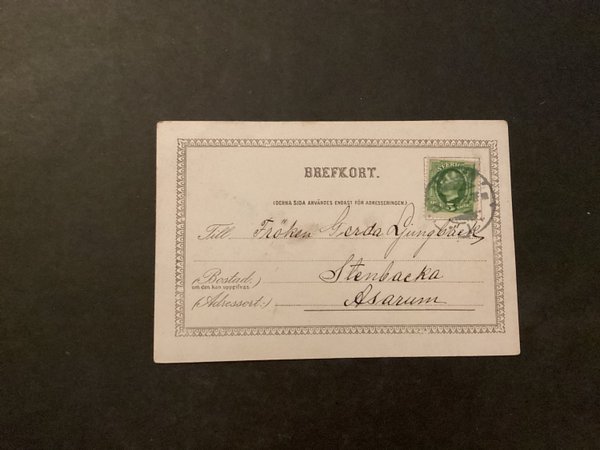 BREFKORT.
SVERIGE
5
(DENNA SIDA ANVÄNDES ENDAST FÖR ADRESSERINGEN.)
Till Fröken Gerda Ljungbäck
(Bostad:) Stenbacka
om den kan uppgifvas
(Adressort:) Asarum